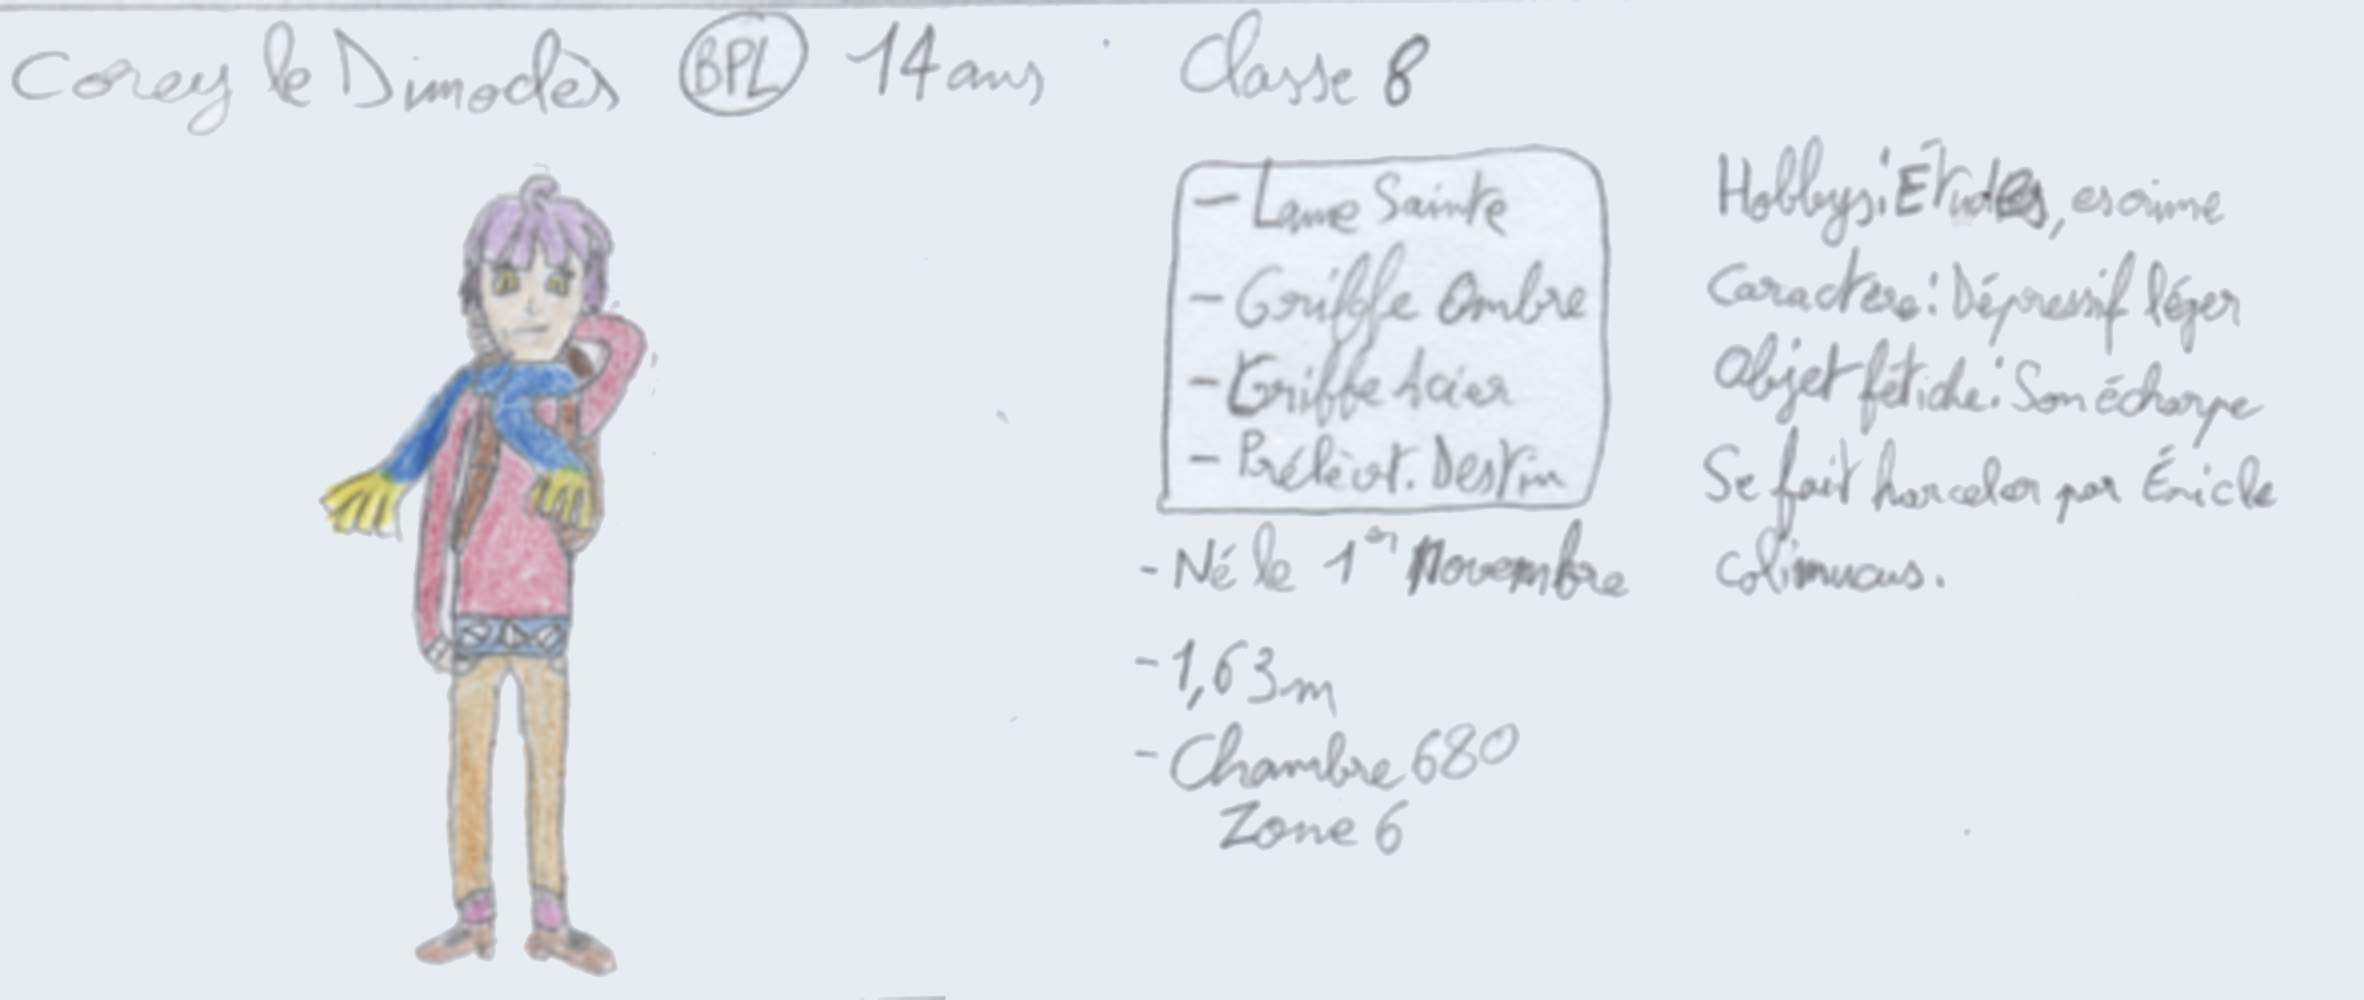 Corey le Dimodès BPL 14 ans Classe 8
- Lame Sainte
- Griffe Ombre
- Griffe Acier
- Prélèvt. Destin
- Né le 1er Novembre
- 1,63m
- Chambre 680
Zone 6
Hobbys: Études, escrime
Caractère: Dépressif léger
Objet fétiche: Son écharpe
Se fait harceler par